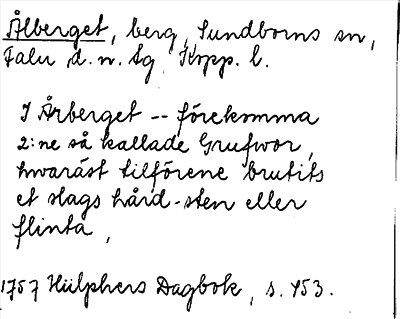 Ålberget, berg, Sundborns sn,
Falu d. n. tg, Kopp. l.
I Årberget -- förekomma
2:ne så kallade Grufwor,
hwaräst tilförene brutits
et slags hård-sten eller
flinta,
1757 Hülphers Dagbok, s. 453.